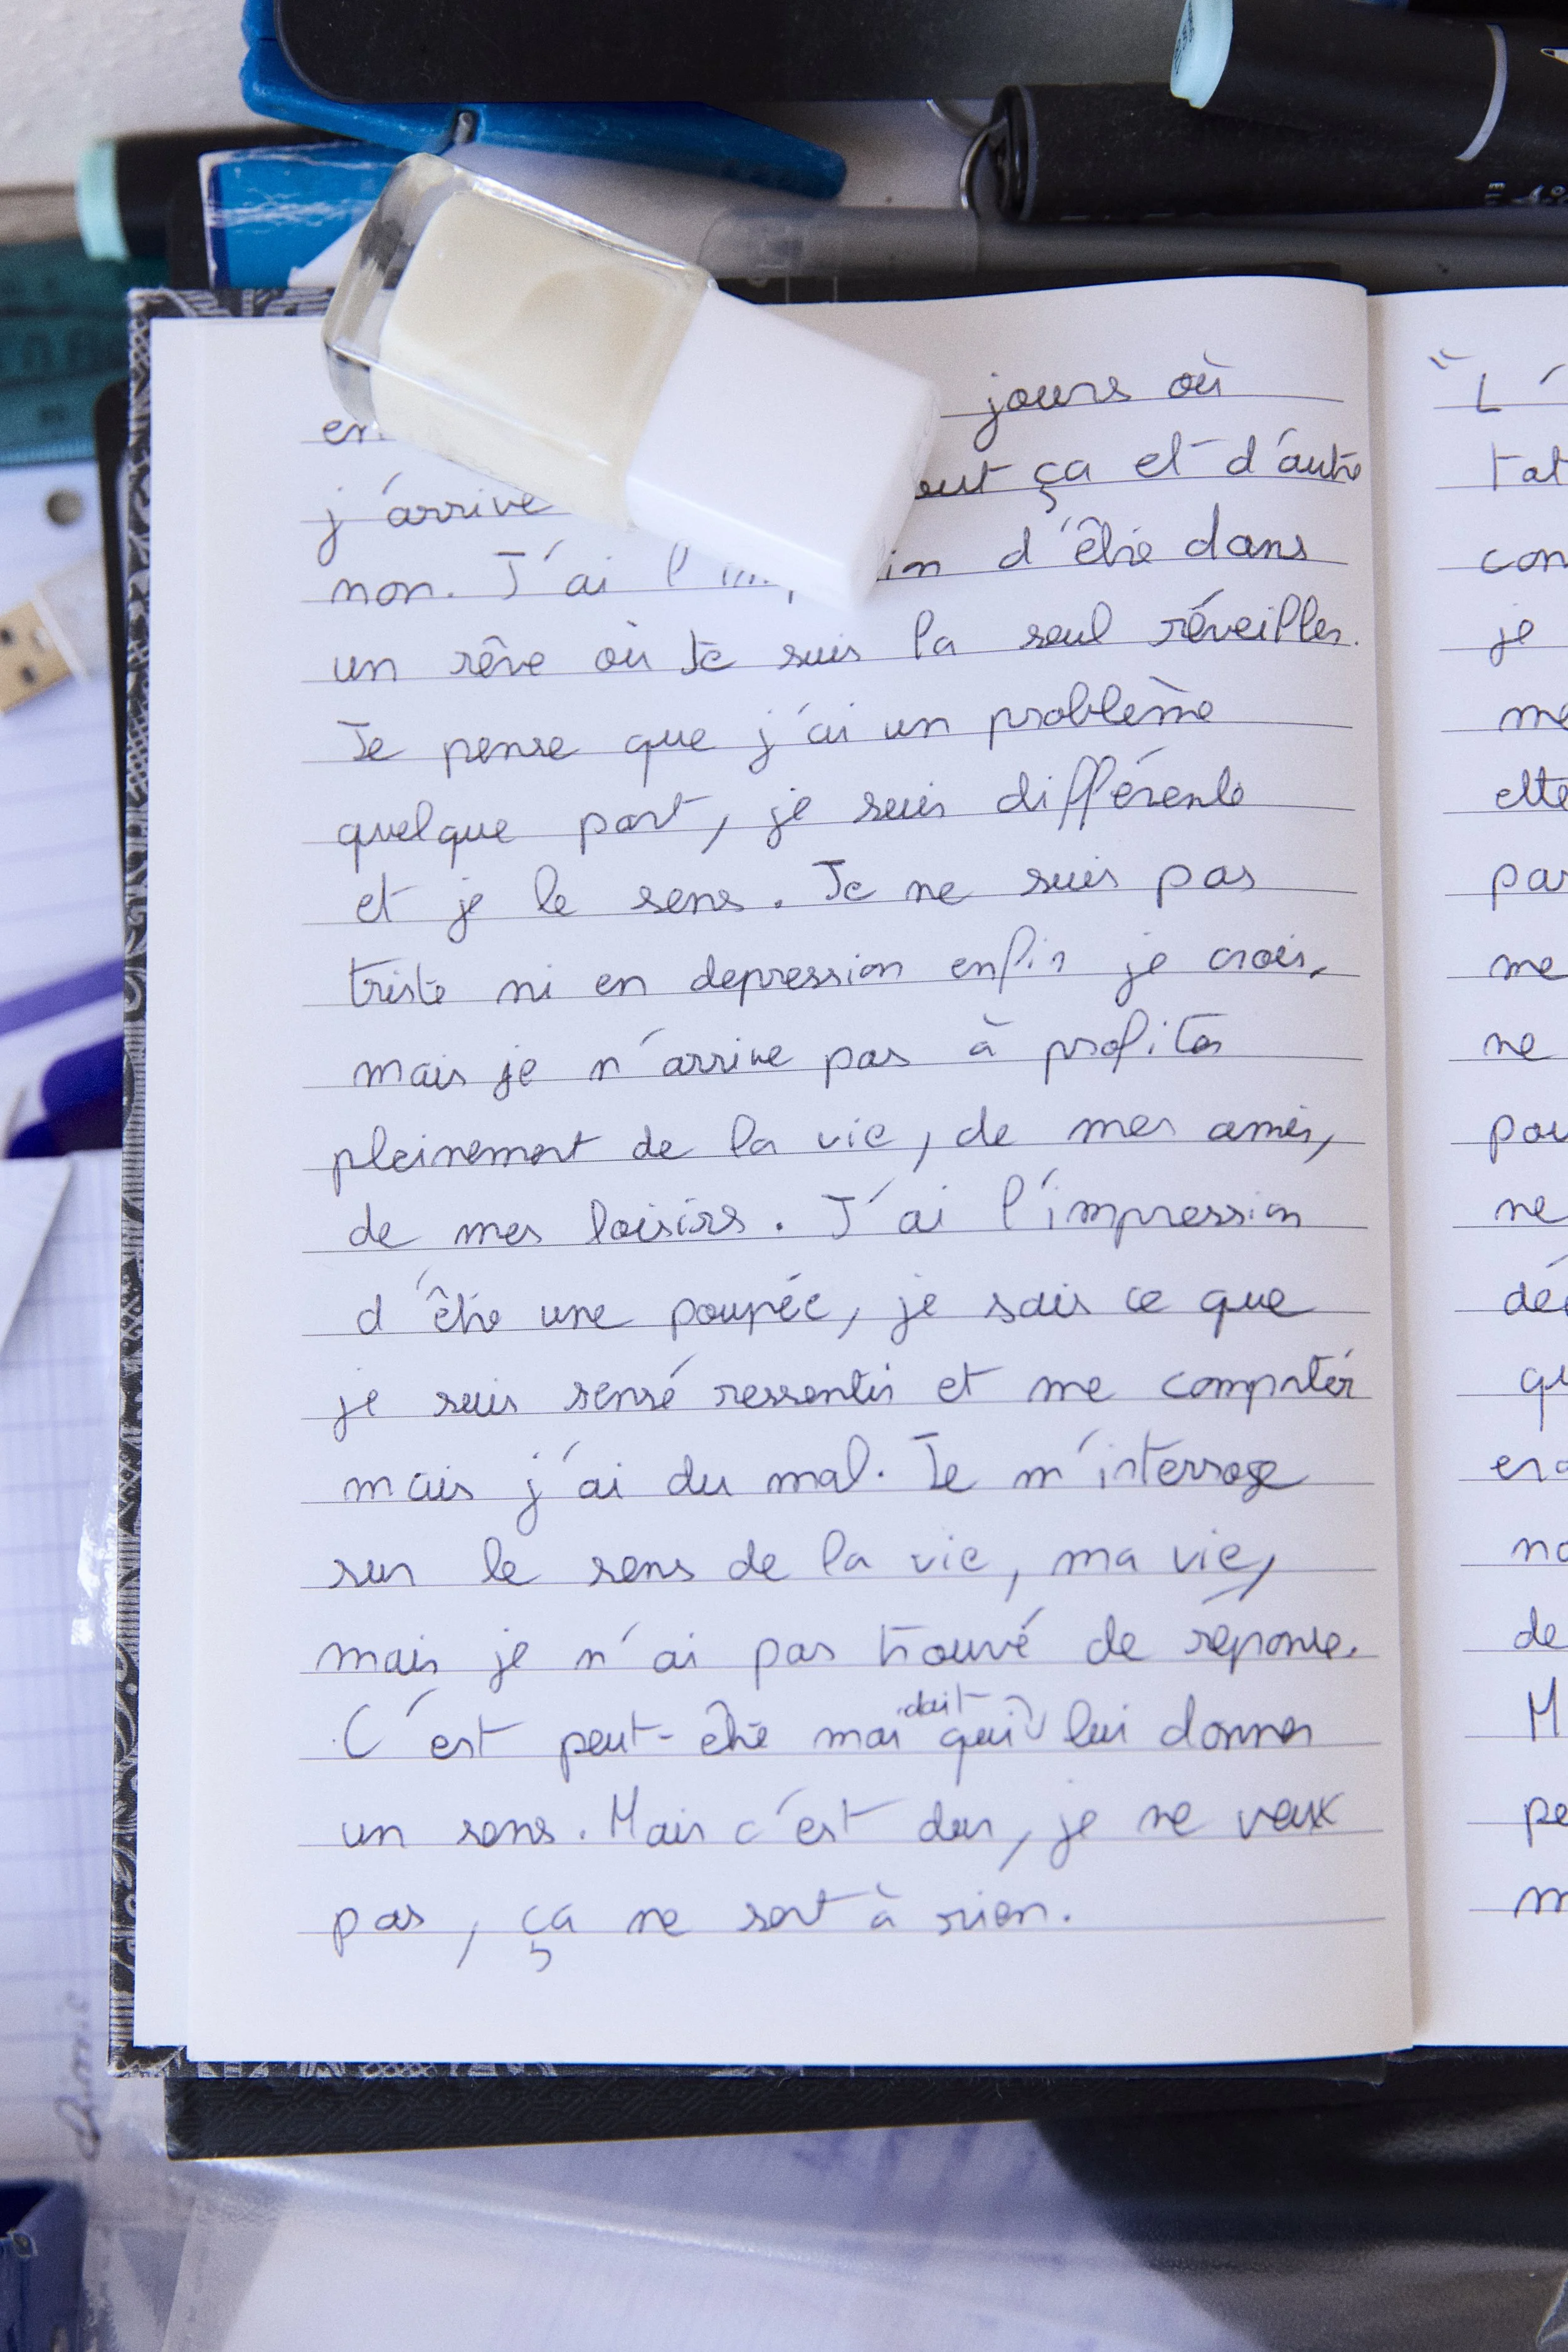 jours où
j'arrive ça et d'autre
non. J'ai d'être dans
un rêve où je suis la seul réveiller.
Je pense que j'ai un problème
quelque part, je suis différente
et je le sens. Je ne suis pas
triste ni en depression enfin je crois,
mais je n'arrive pas à profiter
pleinement de la vie, de mes amis,
de mes loisirs. J'ai l'impression
d'être une poupée, je sais ce que
je suis sensé ressentir et me comporter
mais j'ai du mal. Je m'interroge
sur le sens de la vie, ma vie,
mais je n'ai pas trouvé de réponse.
doit
C'est peut-être moi qui lui donner
un sens. Mais c'est dur, je ne veux
pas, ça ne sert à rien.
"L'
con
je
me
par
me
ne
ne
de
M